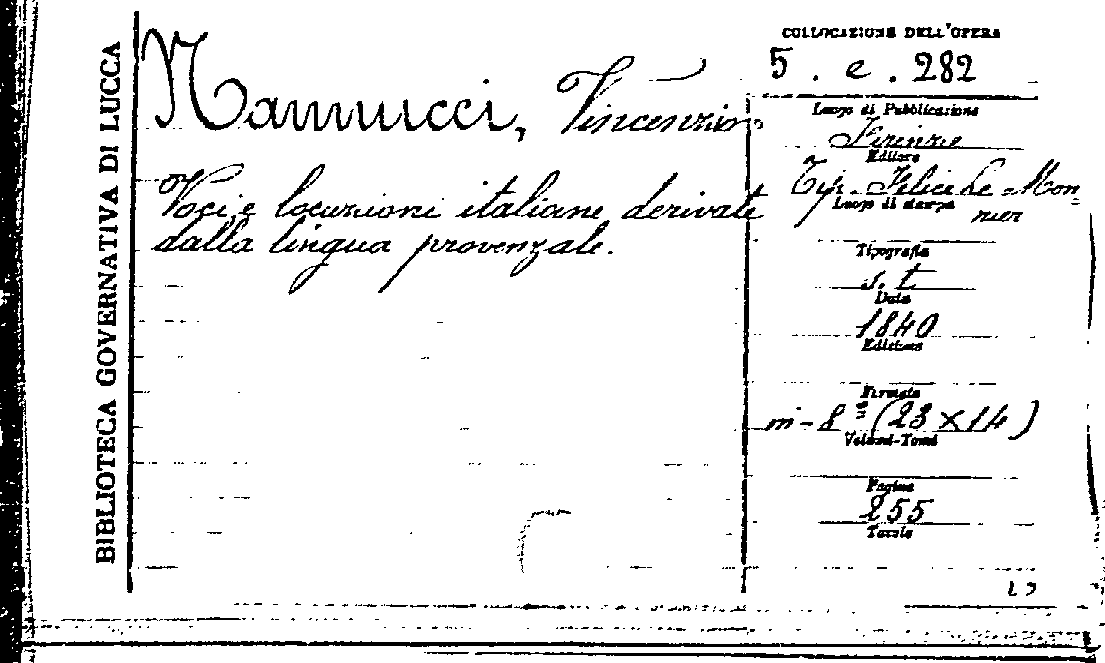 BIBLIOTECA GOVERNATIVA DI LUCCA
Nannucci, Vincenzio
Voci e locuzioni italiane derivate
dalla lingua provenzale.
COLLOCAZIONE DELL'OPERA
5 . e . 282
Luogo di Pubblicazione
Firenze
Editore
Tip. Felice Le Mon=
nier
Luogo di stampa
Tipografia
s. t.
Data
1840
Edizione
Formato
in-8º (23 X 14)
Volumi-Tomi
Pagine
255
Tavole